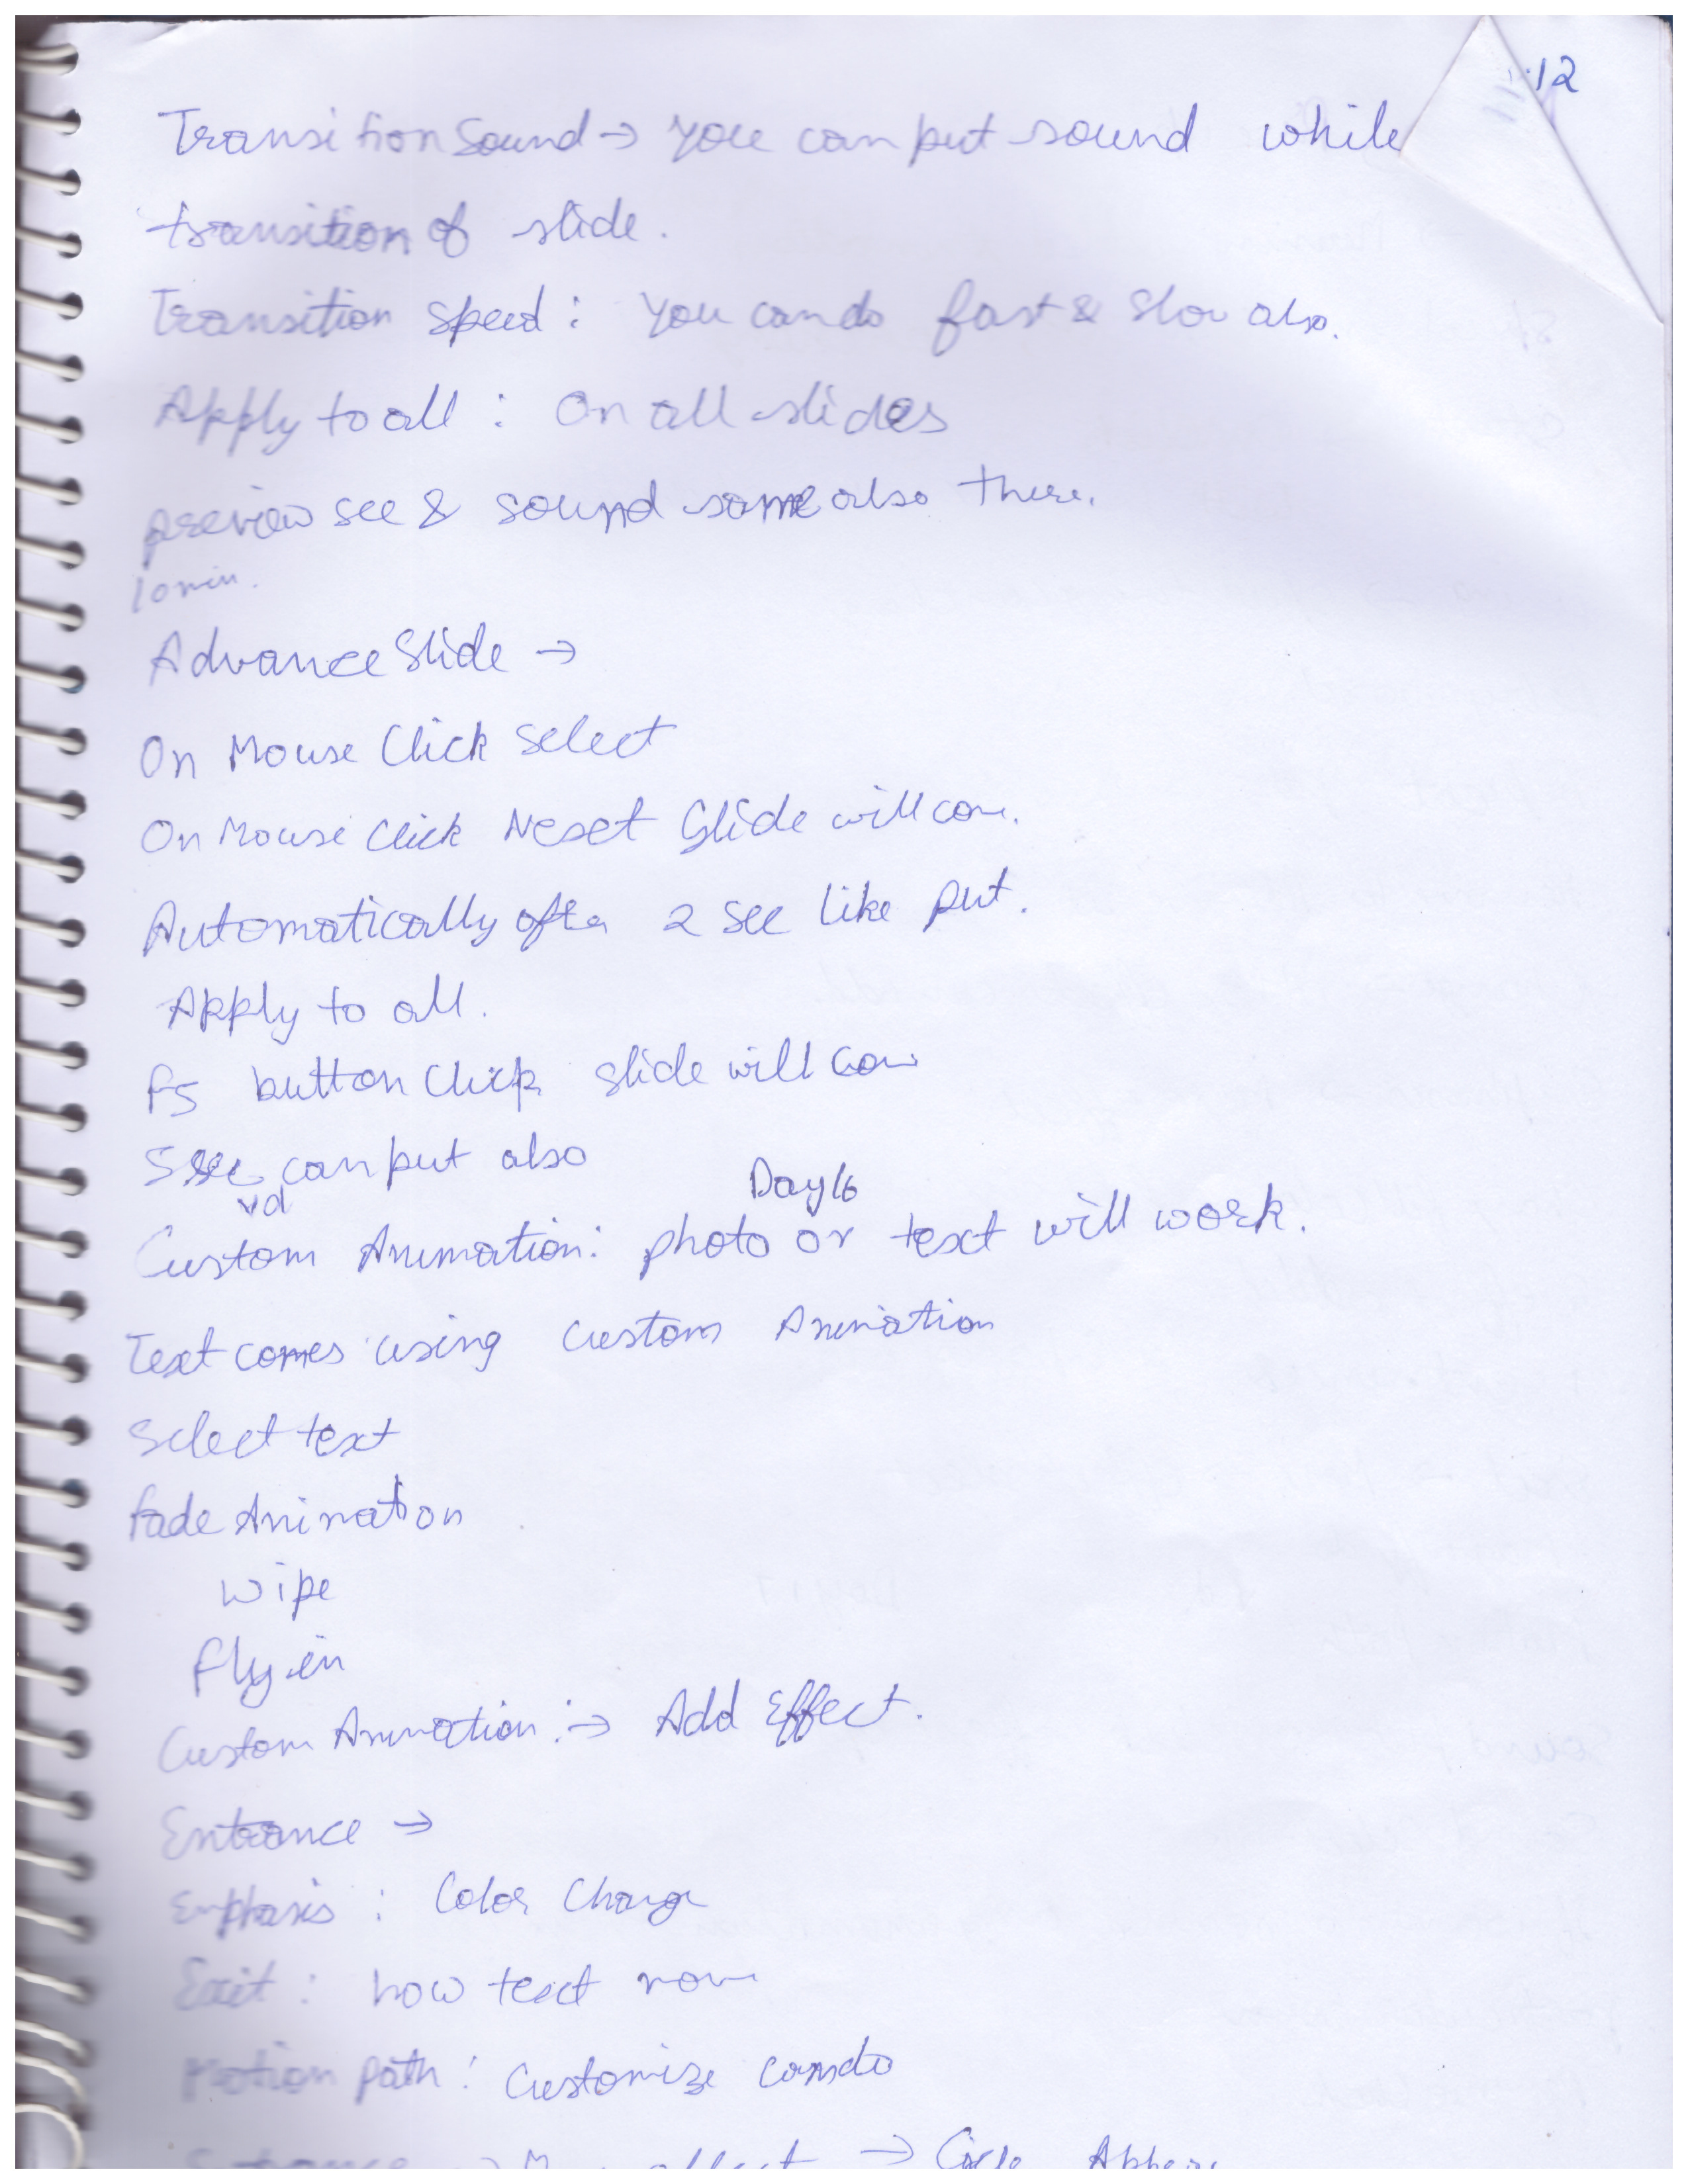 :12
Transition Sound → you can put sound while
transition of slide.
Transition speed : you can do fast & slow also.
Apply to all : On all slides
preview see & sound same also there.
10 min.
Advance Slide →
On Mouse Click select
On Mouse Click Next Slide will com.
Automatically after 2 sec like put.
Apply to all.
F5 button Click slide will com
5 sec can put also
vd Day 16
Custom Animation: photo or text will work.
Text comes using custom Animation
Select text
fade Animation
wipe
fly in
Custom Animation :→ Add Effect.
Entrance →
Emphasis : Color Change
Exit : how text
Motion Path : Customize can do
Entrance → effect → Circle